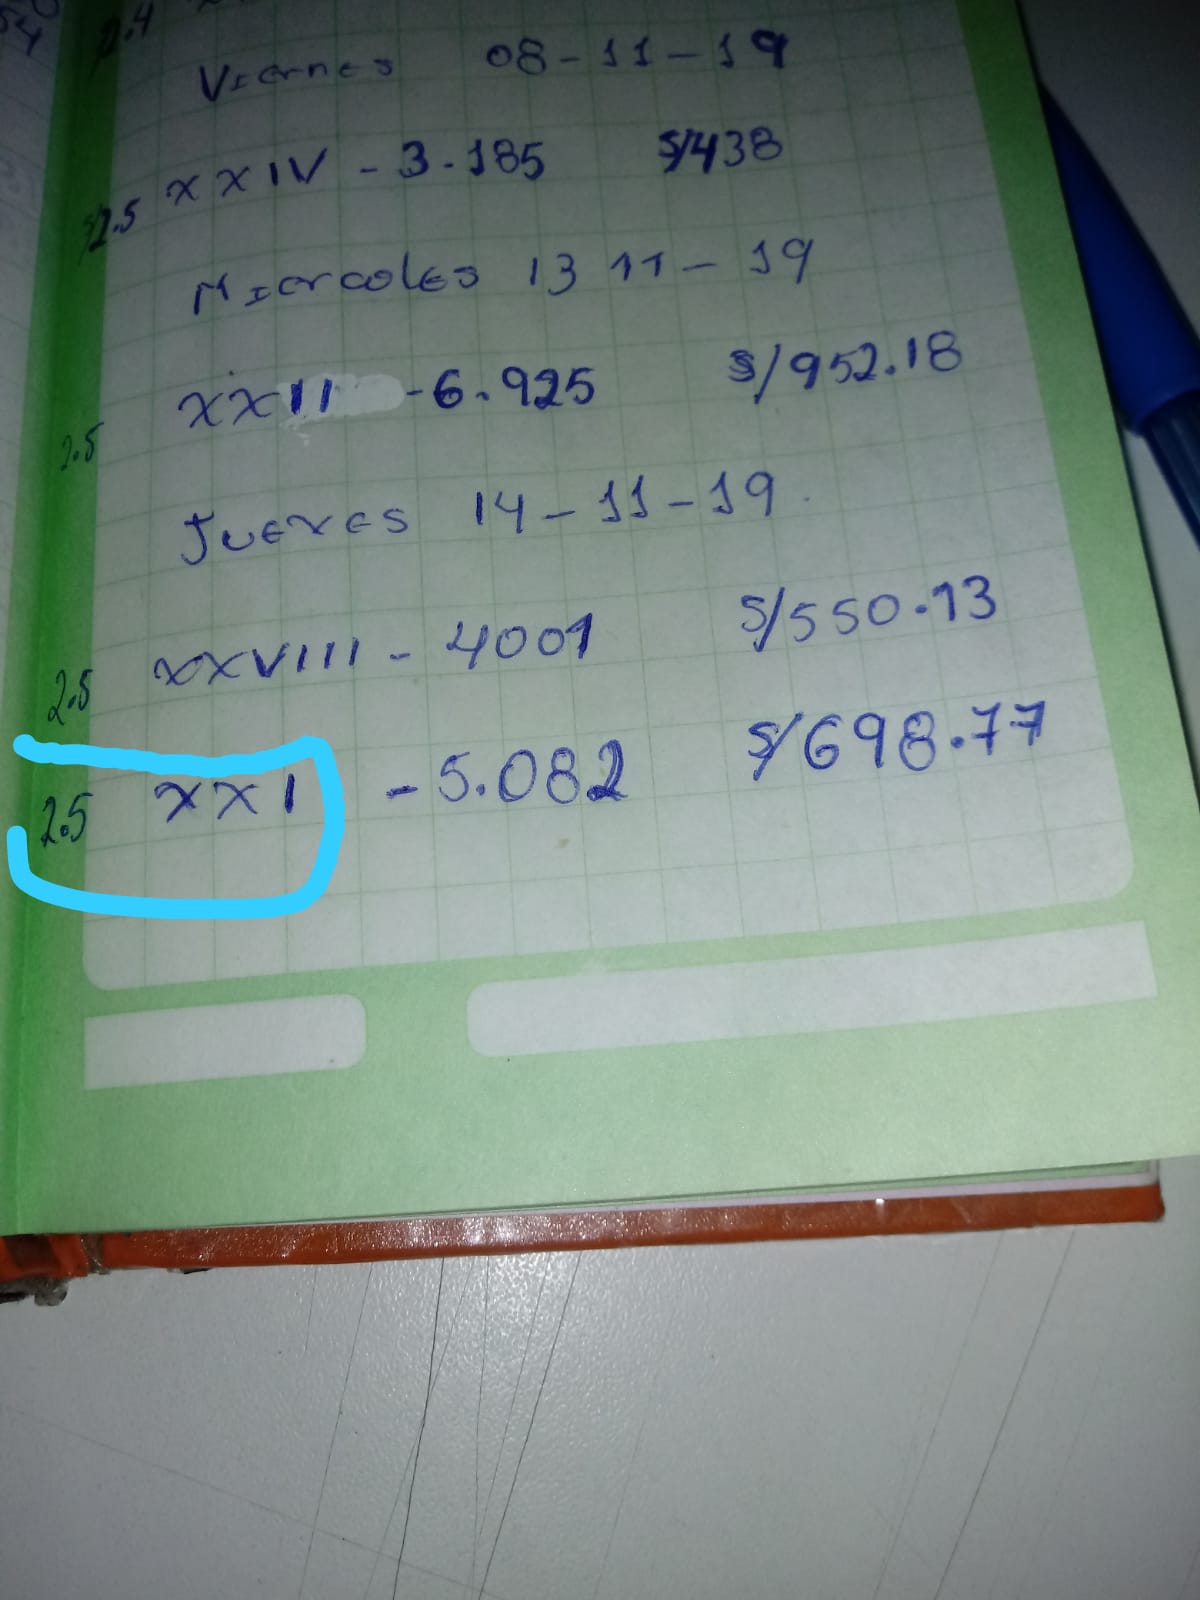 2.4
Viernes 08-11-19
2.5 XXIV - 3.185 S/438
Miercoles 13 11-19
2.5 XXII -6.925 S/952.18
Jueves 14-11-19
2.5 XXVIII - 4001 S/550.13
2.5 XXI - 5.082 S/698.77